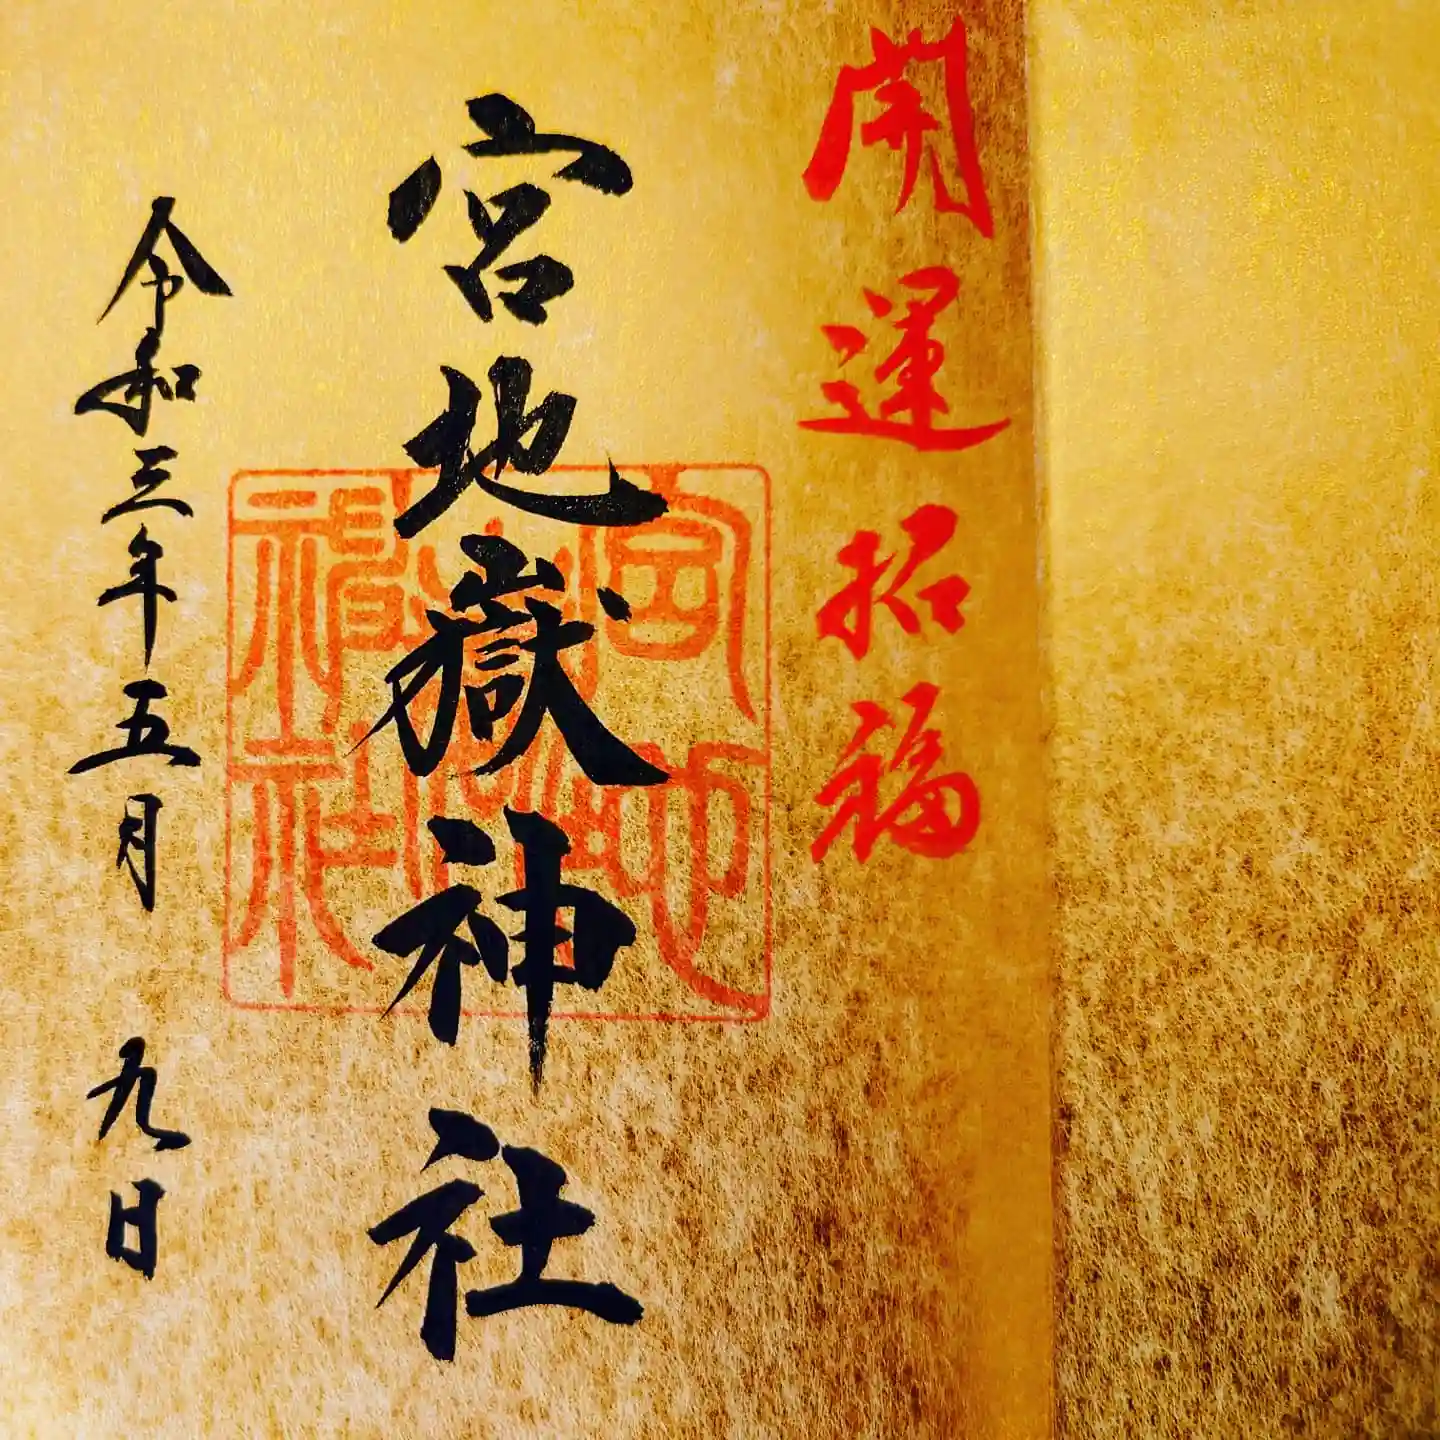 開運招福
宮地嶽神社
宮地嶽神社
令和三年五月九日